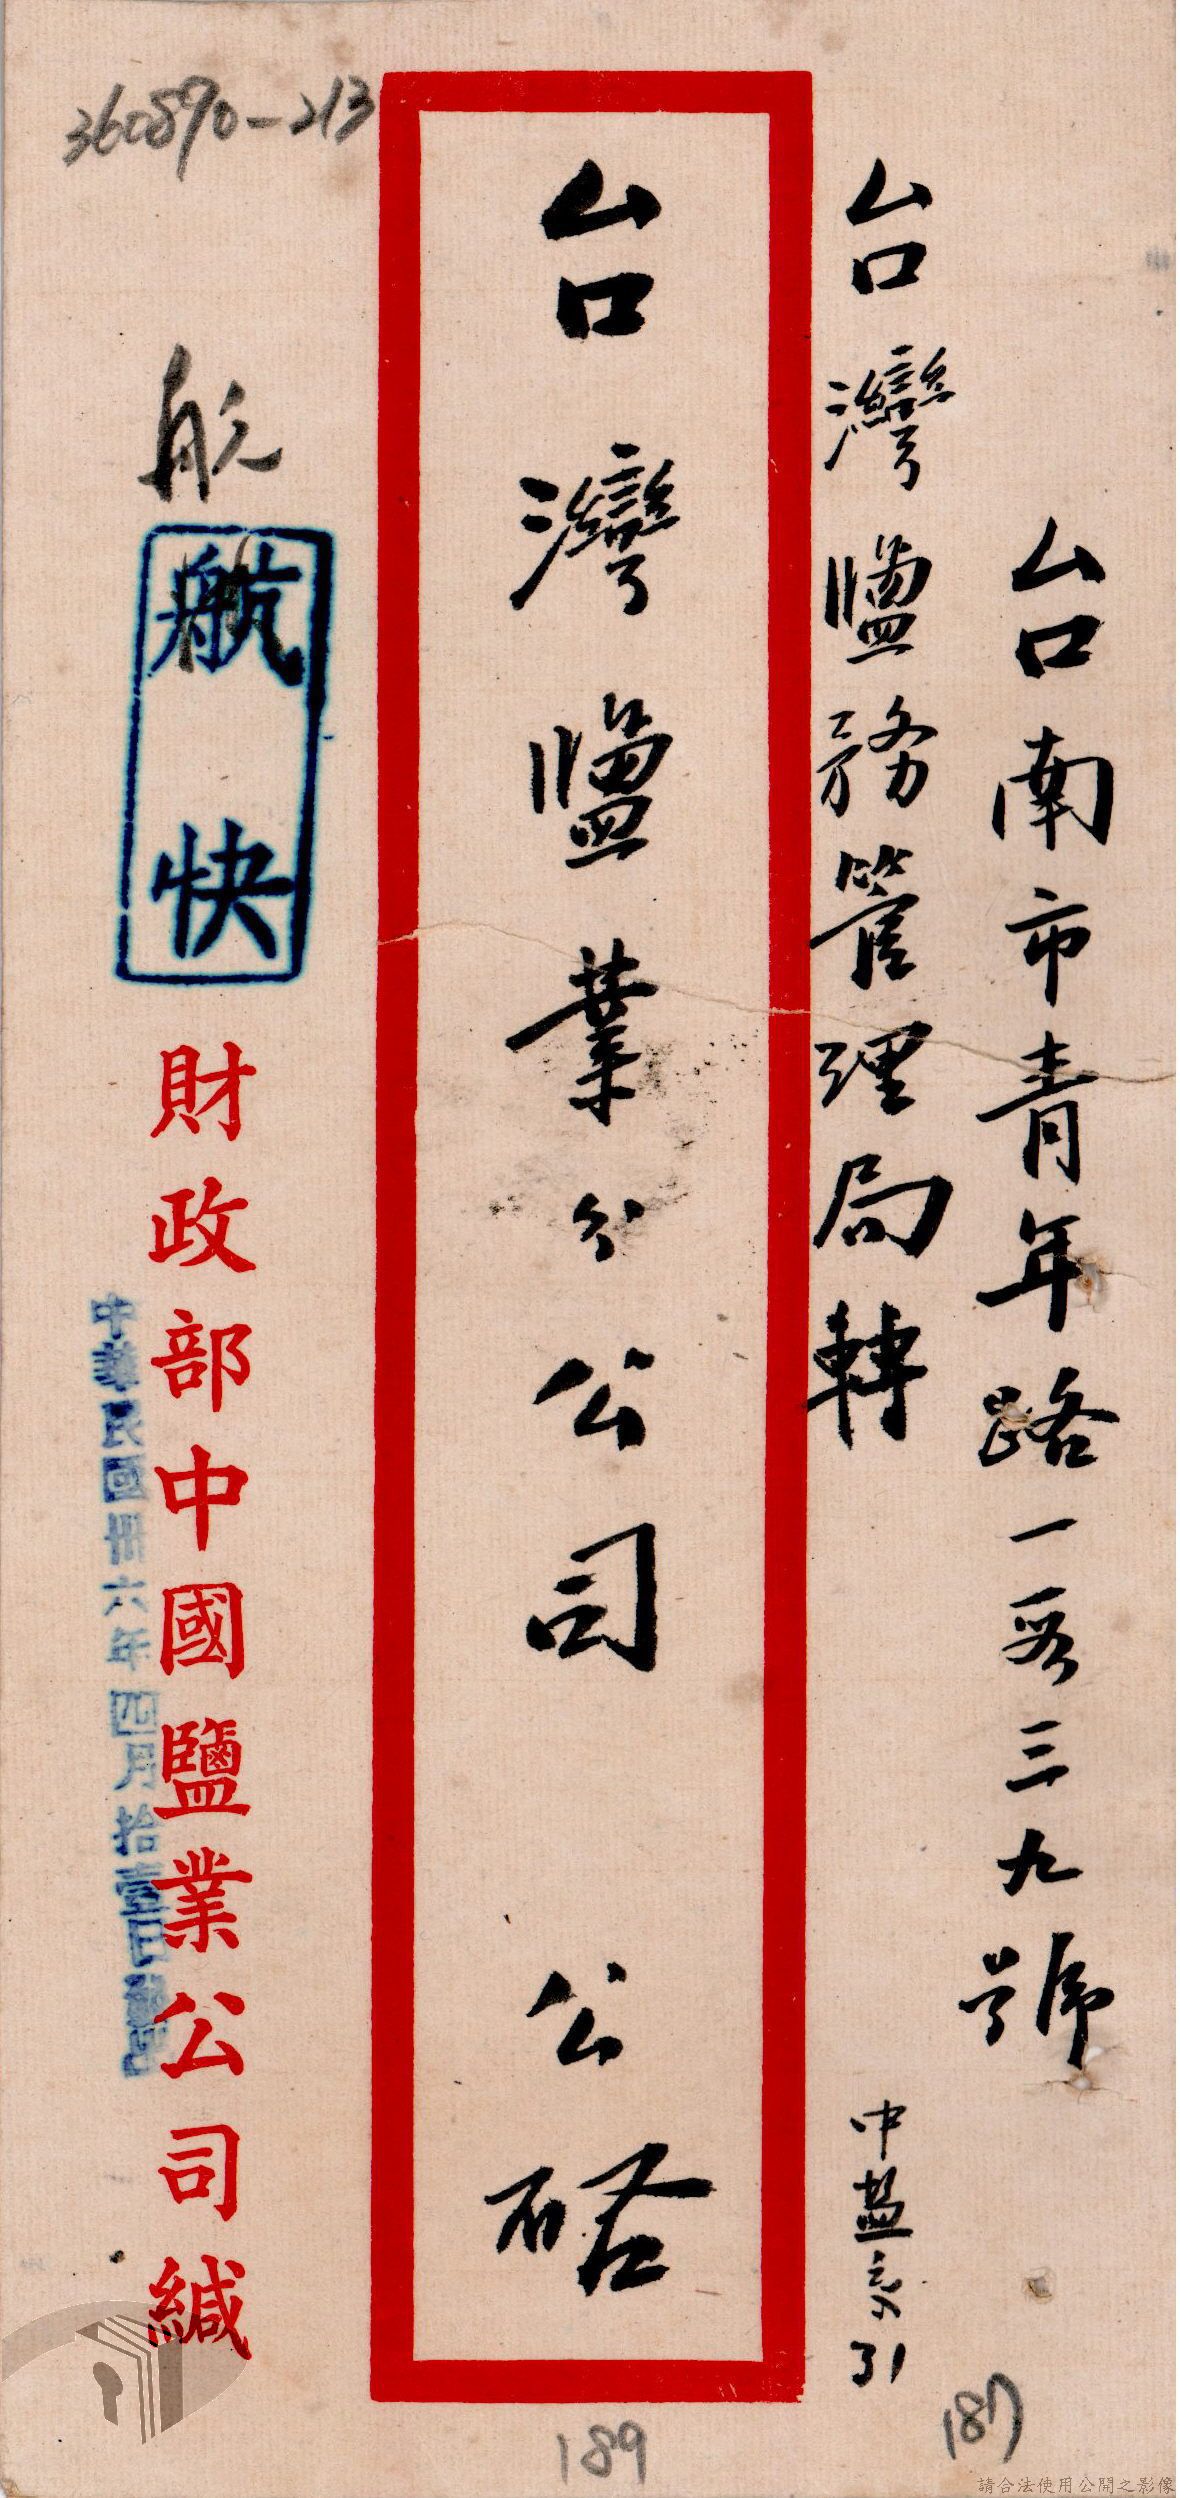 台南市青年路一段三九號
台灣鹽務管理局轉
中盐
31
187
台灣鹽業分公司 公啓
189
360890-213
航
航快
財政部中國鹽業公司緘
中華民國卅六年四月拾壹日
請合法使用公開之影像